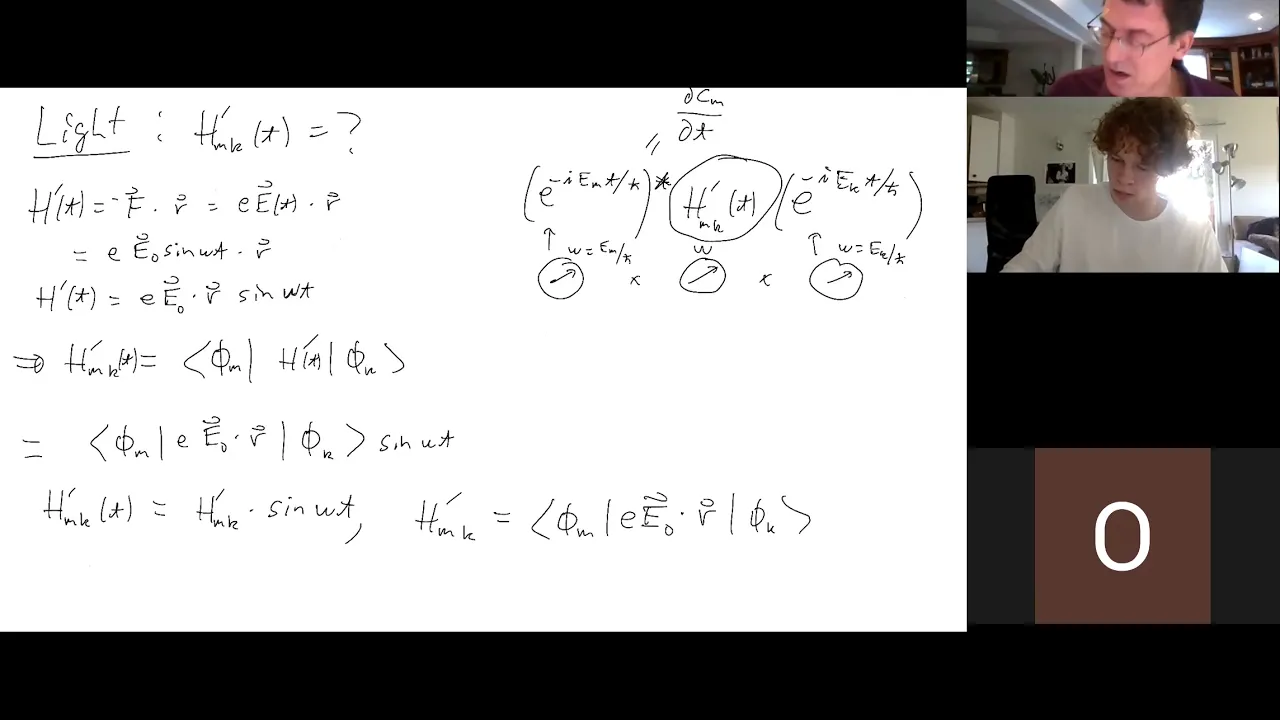 Light : H'ₘₖ(t) = ?
H'(t) = -F⃗ · r⃗ = e E⃗(t) · r⃗
= e E⃗₀ sin ωt · r⃗
H'(t) = e E⃗₀ · r⃗ sin ωt
⇒ H'ₘₖ(t) = ⟨ϕₘ| H'(t) |ϕₖ⟩
= ⟨ϕₘ| e E⃗₀ · r⃗ |ϕₖ⟩ sin ωt
H'ₘₖ(t) = H'ₘₖ · sin ωt, H'ₘₖ = ⟨ϕₘ| e E⃗₀ · r⃗ |ϕₖ⟩
∂Cₘ
∂t
=
(e^{-i Eₘ t/ħ})* H'ₘₖ(t) (e^{-i Eₖ t/ħ})
↑ ω = Eₘ/ħ ω ↑ ω = Eₖ/ħ
× ×
O